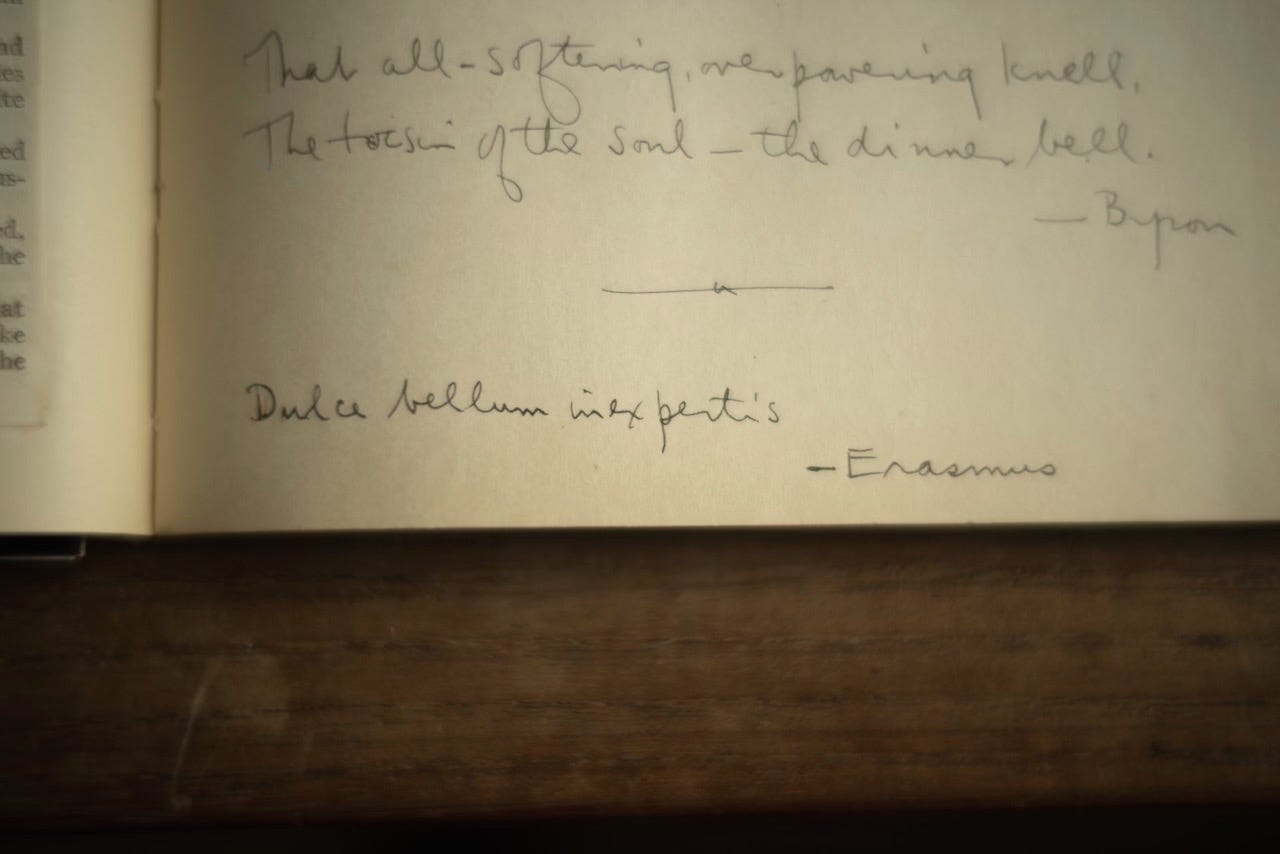 ad
ies
ite
ed
us-
ed.
he
at
ke
he
That all-softening, overpowering knell,
The tocsin of the soul – the dinner bell.
— Byron
Dulce bellum inexpertis
– Erasmus